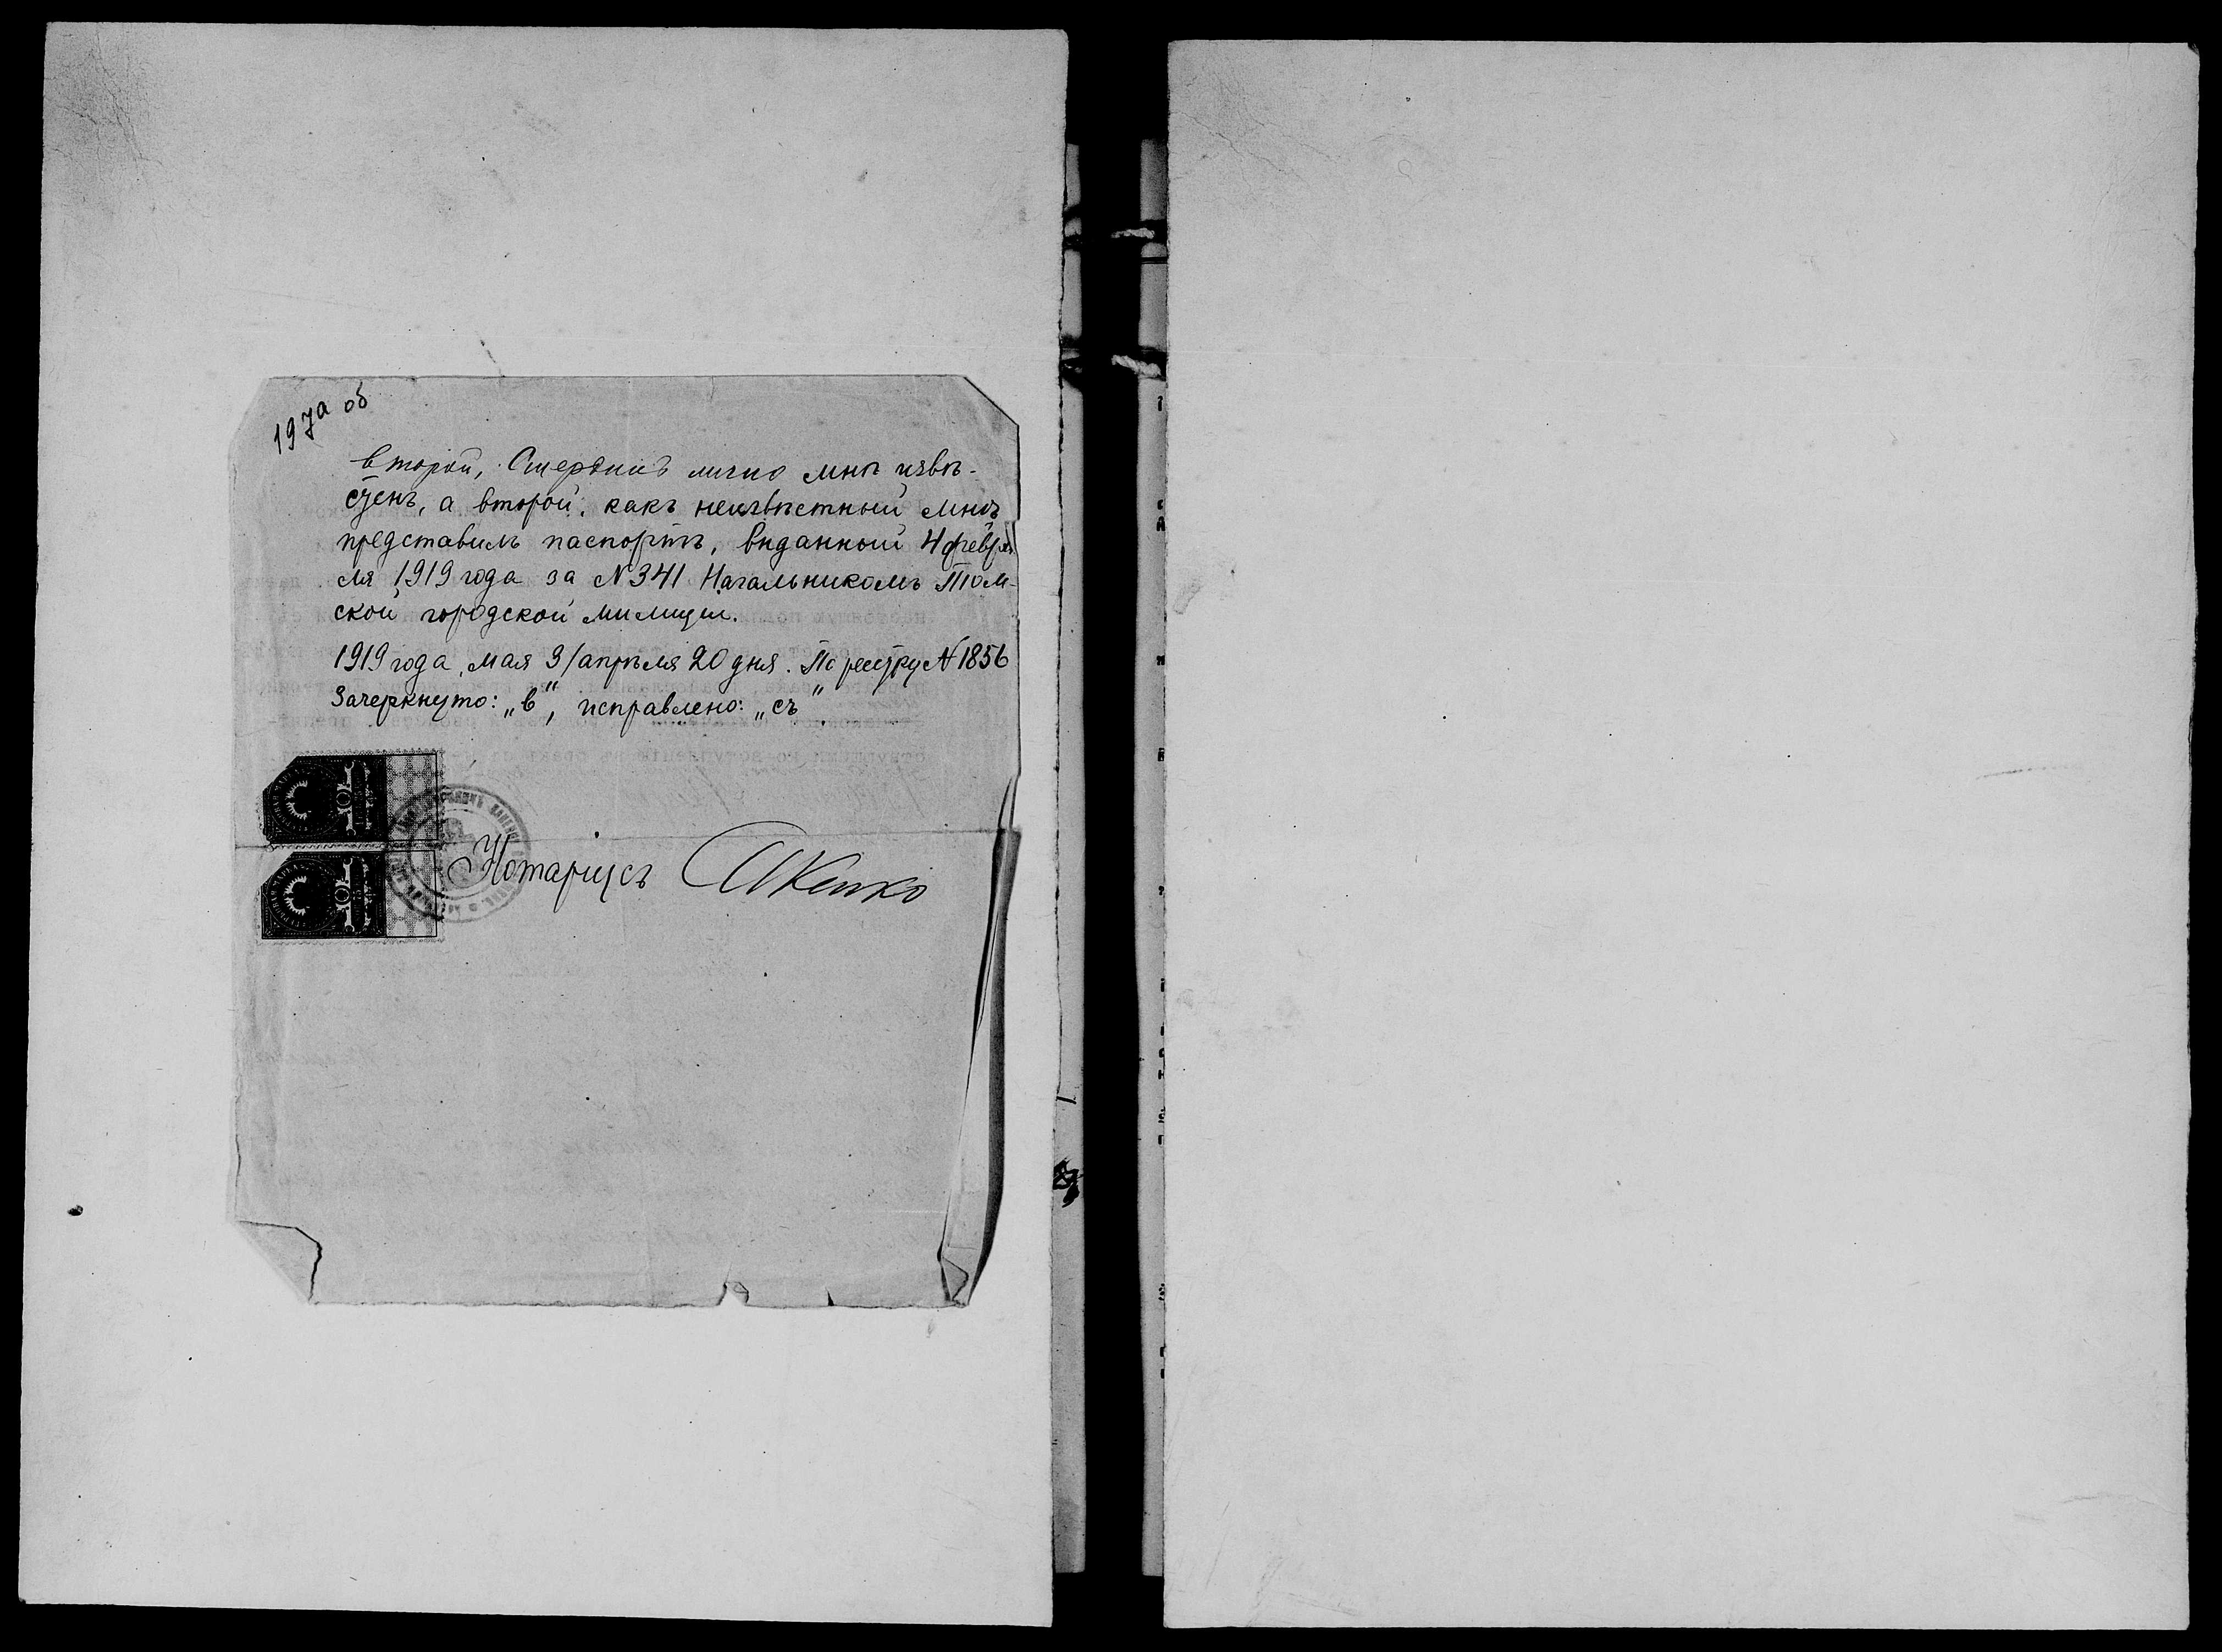 197а об
второй, лично мнѣ извѣ-
стенъ, а второй, какъ неизвѣстный мнѣ
представилъ паспортъ, выданный 4 февра
ля 1919 года за N 341 Начальникомъ Том-
ской городской милиціи.
1919 года, мая 3/апрѣля 20 дня. По реестру N 1856
Зачеркнуто: „в", исправлено: „съ"
Нотаріусъ